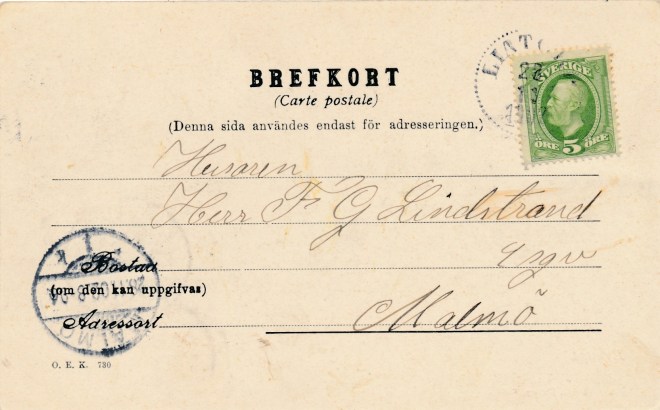 BREFKORT
(Carte postale)
(Denna sida användes endast för adresseringen.)
SVERIGE
ÖRE 5 ÖRE
22
Husaren
Herr F G Lindstrand
Malmö
Bostad
(om den kan uppgifvas)
Adressort
MALMÖ
O. E. K. 730